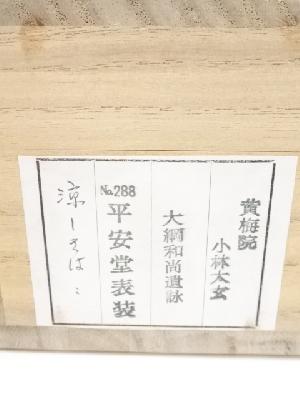 黄梅院
小林太玄
大綱和尚遺詠
No.288
平安堂表装
涼しさは〻